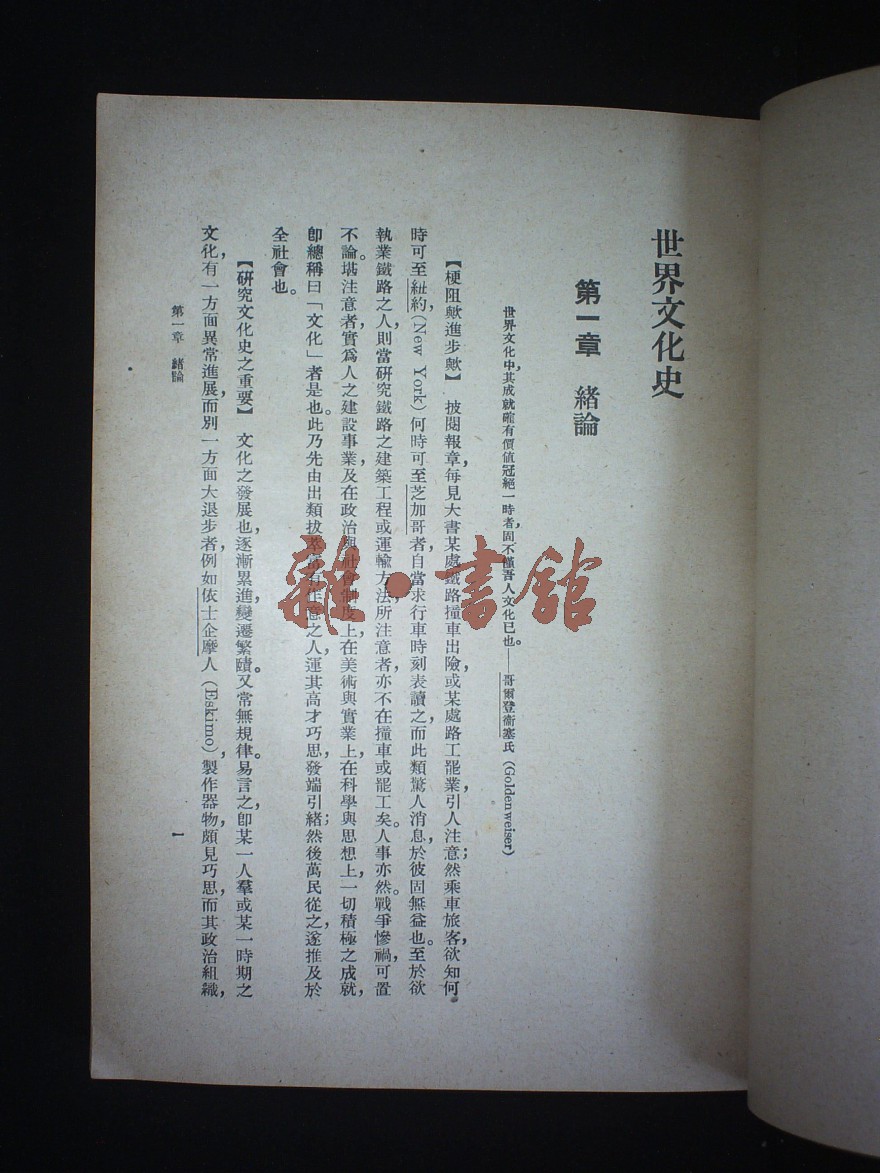 世界文化史
第一章　緒論
世界文化中，其成就確有價值冠絕一時者，固不僅吾人文化已也。——哥爾登衞塞氏（Goldenweiser）
【梗阻歟進步歟】　披閱報章，每見大書某處鐵路撞車出險，或某處路工罷業，引人注意；然乘車旅客，欲知何
時可至紐約，（New York）何時可至芝加哥者，自當求行車時刻表讀之，而此類驚人消息，於彼固無益也。至於欲
執業鐵路之人，則當研究鐵路之建築工程或運輸方法，所注意者，亦不在撞車或罷工矣。人事亦然。戰爭慘禍，可置
不論。堪注意者，實爲人之建設事業，及在政治與社會制度上，在美術與實業上，在科學與思想上，一切積極之成就，
卽總稱曰「文化」者是也。此乃先由出類拔萃富有作意之人，運其高才巧思，發端引緒；然後萬民從之，遂推及於
全社會也。
【研究文化史之重要】　文化之發展也，逐漸累進，變遷繁賾。又常無規律。易言之，卽某一人羣或某一時期之
文化，有一方面異常進展，而別一方面大退步者，例如依士企摩人（Eskimo），製作器物，頗見巧思，而其政治組織，
第一章　緒論
一
雜·書館